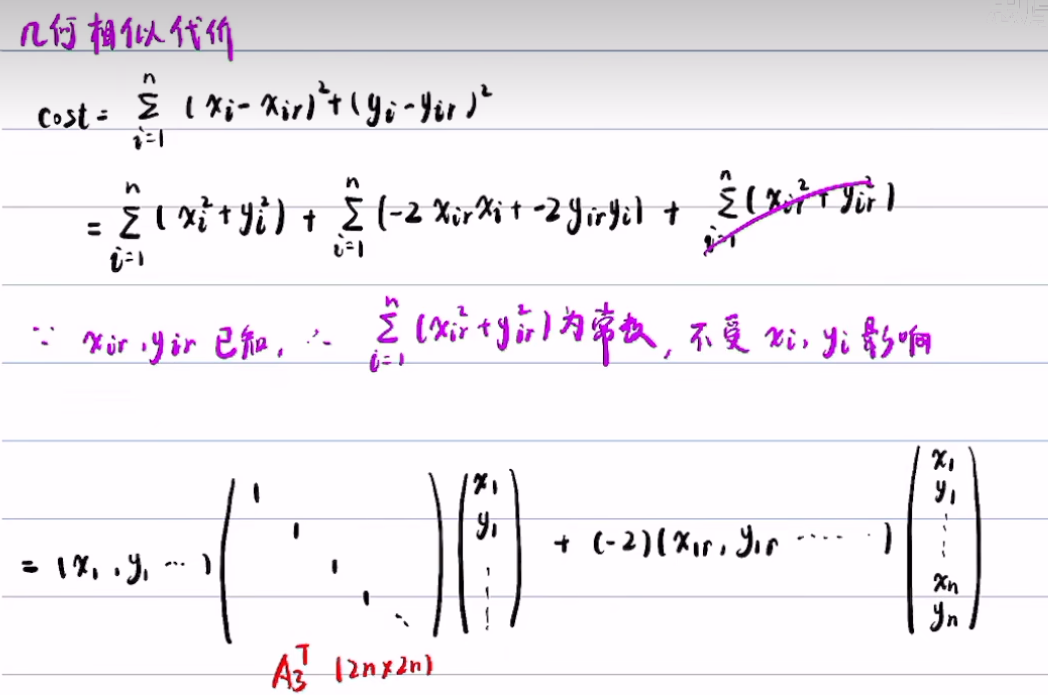 几何相似代价
cost = ∑_{i=1}^{n} (x_i - x_{ir})^2 + (y_i - y_{ir})^2
= ∑_{i=1}^{n} (x_i^2 + y_i^2) + ∑_{i=1}^{n} (-2 x_{ir} x_i + -2 y_{ir} y_i) + ∑_{i=1}^{n} (x_{ir}^2 + y_{ir}^2)
∵ x_{ir}, y_{ir} 已知, ∴ ∑_{i=1}^{n} (x_{ir}^2 + y_{ir}^2) 为常数, 不受 x_i, y_i 影响
= (x_1, y_1 ⋯) ( 1 1 1 1 ⋱ ) ( x_1 y_1 ⋮ ) + (-2)(x_{1r}, y_{1r} ⋯⋯) ( x_1 y_1 ⋮ x_n y_n )
A_3^T (2n×2n)